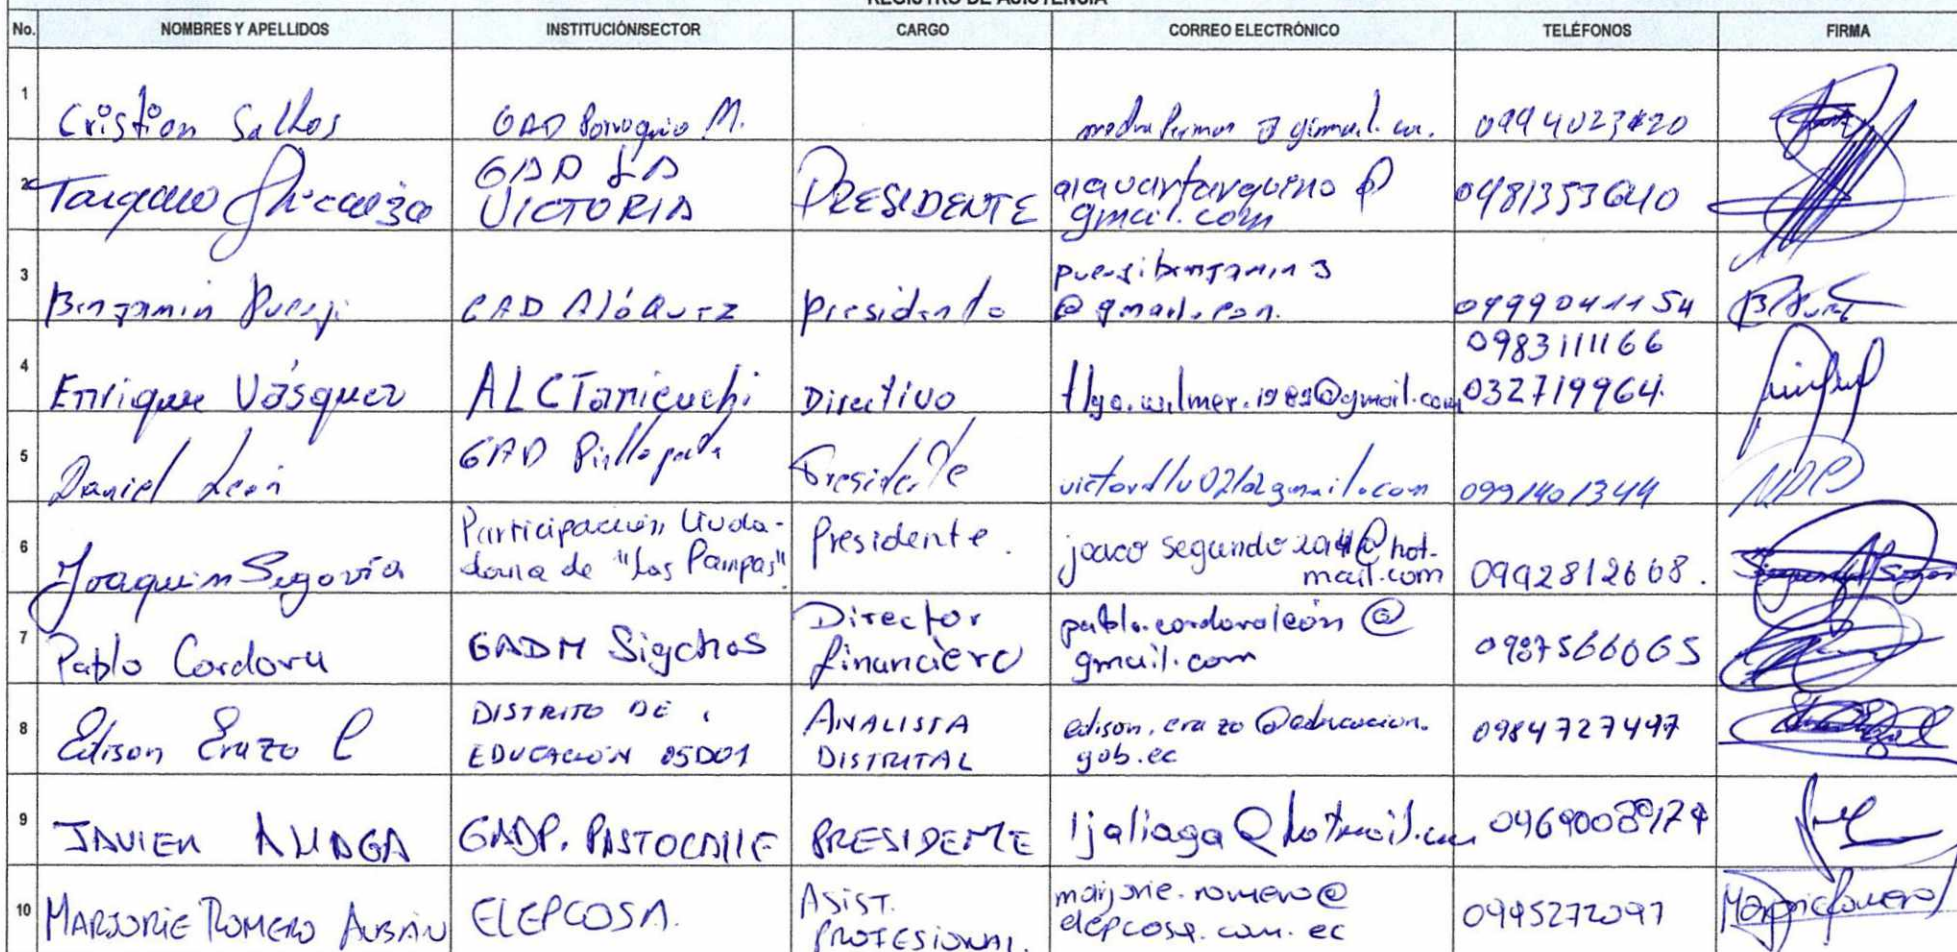 REGISTRO DE ASISTENCIA
No. NOMBRES Y APELLIDOS INSTITUCIÓN/SECTOR CARGO CORREO ELECTRÓNICO TELÉFONOS FIRMA
1 Cristian Saltos GAD M. 0994023420
2 GAD LA
VICTORIA PRESIDENTE
gmail.com 04813536410
3 Benjamin GAD Aláquez presidente
@gmail.com. 0999041154
4 Enrique Vásquez ALCTanicuchi Directivo tlgo.wilmer.1989@gmail.com 0983111166
032719964.
5 Daniel León GAD Pinllopata Presidente 0991401344
6 Joaquin Segovia Participación Ciuda-
dana de "Las Pampas" Presidente. joaco segundo 2014@hot-
mail.com 0992812608.
7 Pablo Cordova GADM Sigchos Director
financiero pablo.cordovaleón@
gmail.com 0987566065
8 Edison Erazo C DISTRITO DE
EDUCACIÓN 05D01 ANALISTA
DISTRITAL edison.erazo@educacion.
gob.ec 0984727497
9 JAVIER ALIAGA GADP. PASTOCALLE PRESIDENTE ljaliaga@hotmail.com 0969008974
10 MARJORIE ROMERO ELEPCOSA. ASIST.
PROFESIONAL. marjorie.romero@
elepcosa.com.ec 0995272097